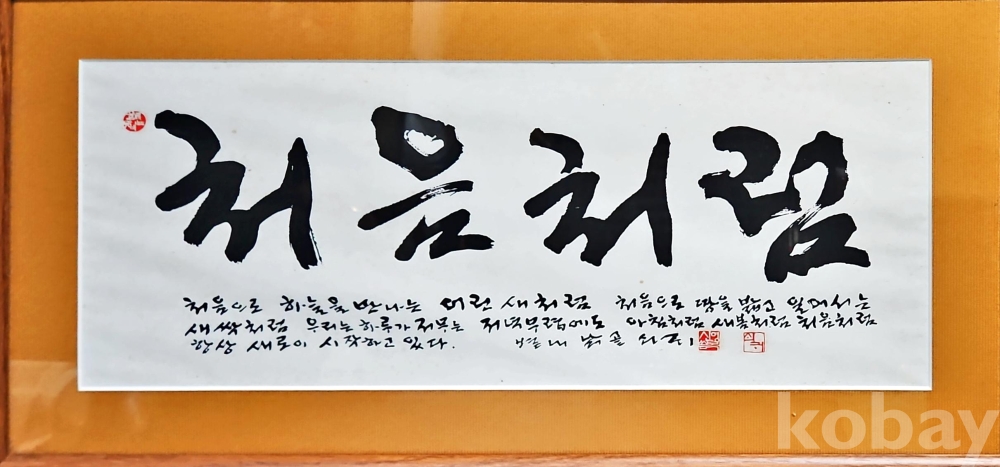 처음처럼
처음으로 하늘을 만나는 어린 새처럼 처음으로 땅을 밟고 일어서는
새싹처럼 우리는 하루가 저무는 저녁무렵에도 아침처럼 새봄처럼 처음처럼
항상 새로이 시작하고 있다.
kobay